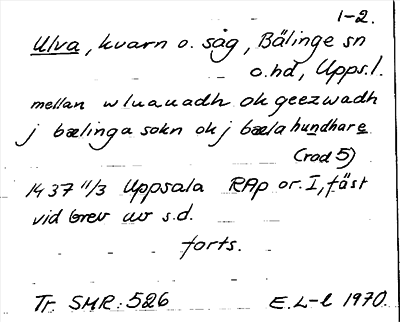 1-2.
Ulva, kvarn o. såg, Bälinge sn
o. hd, Upps. l.
mellan wluauadh ok geezwadh
j bælinga sokn ok j bæla hundhare
(rad 5)
1437 11/3 Uppsala RAp or. I, fäst
vid brev av s.d.
forts.
Tr SMR: 526 E.L-l 1970.